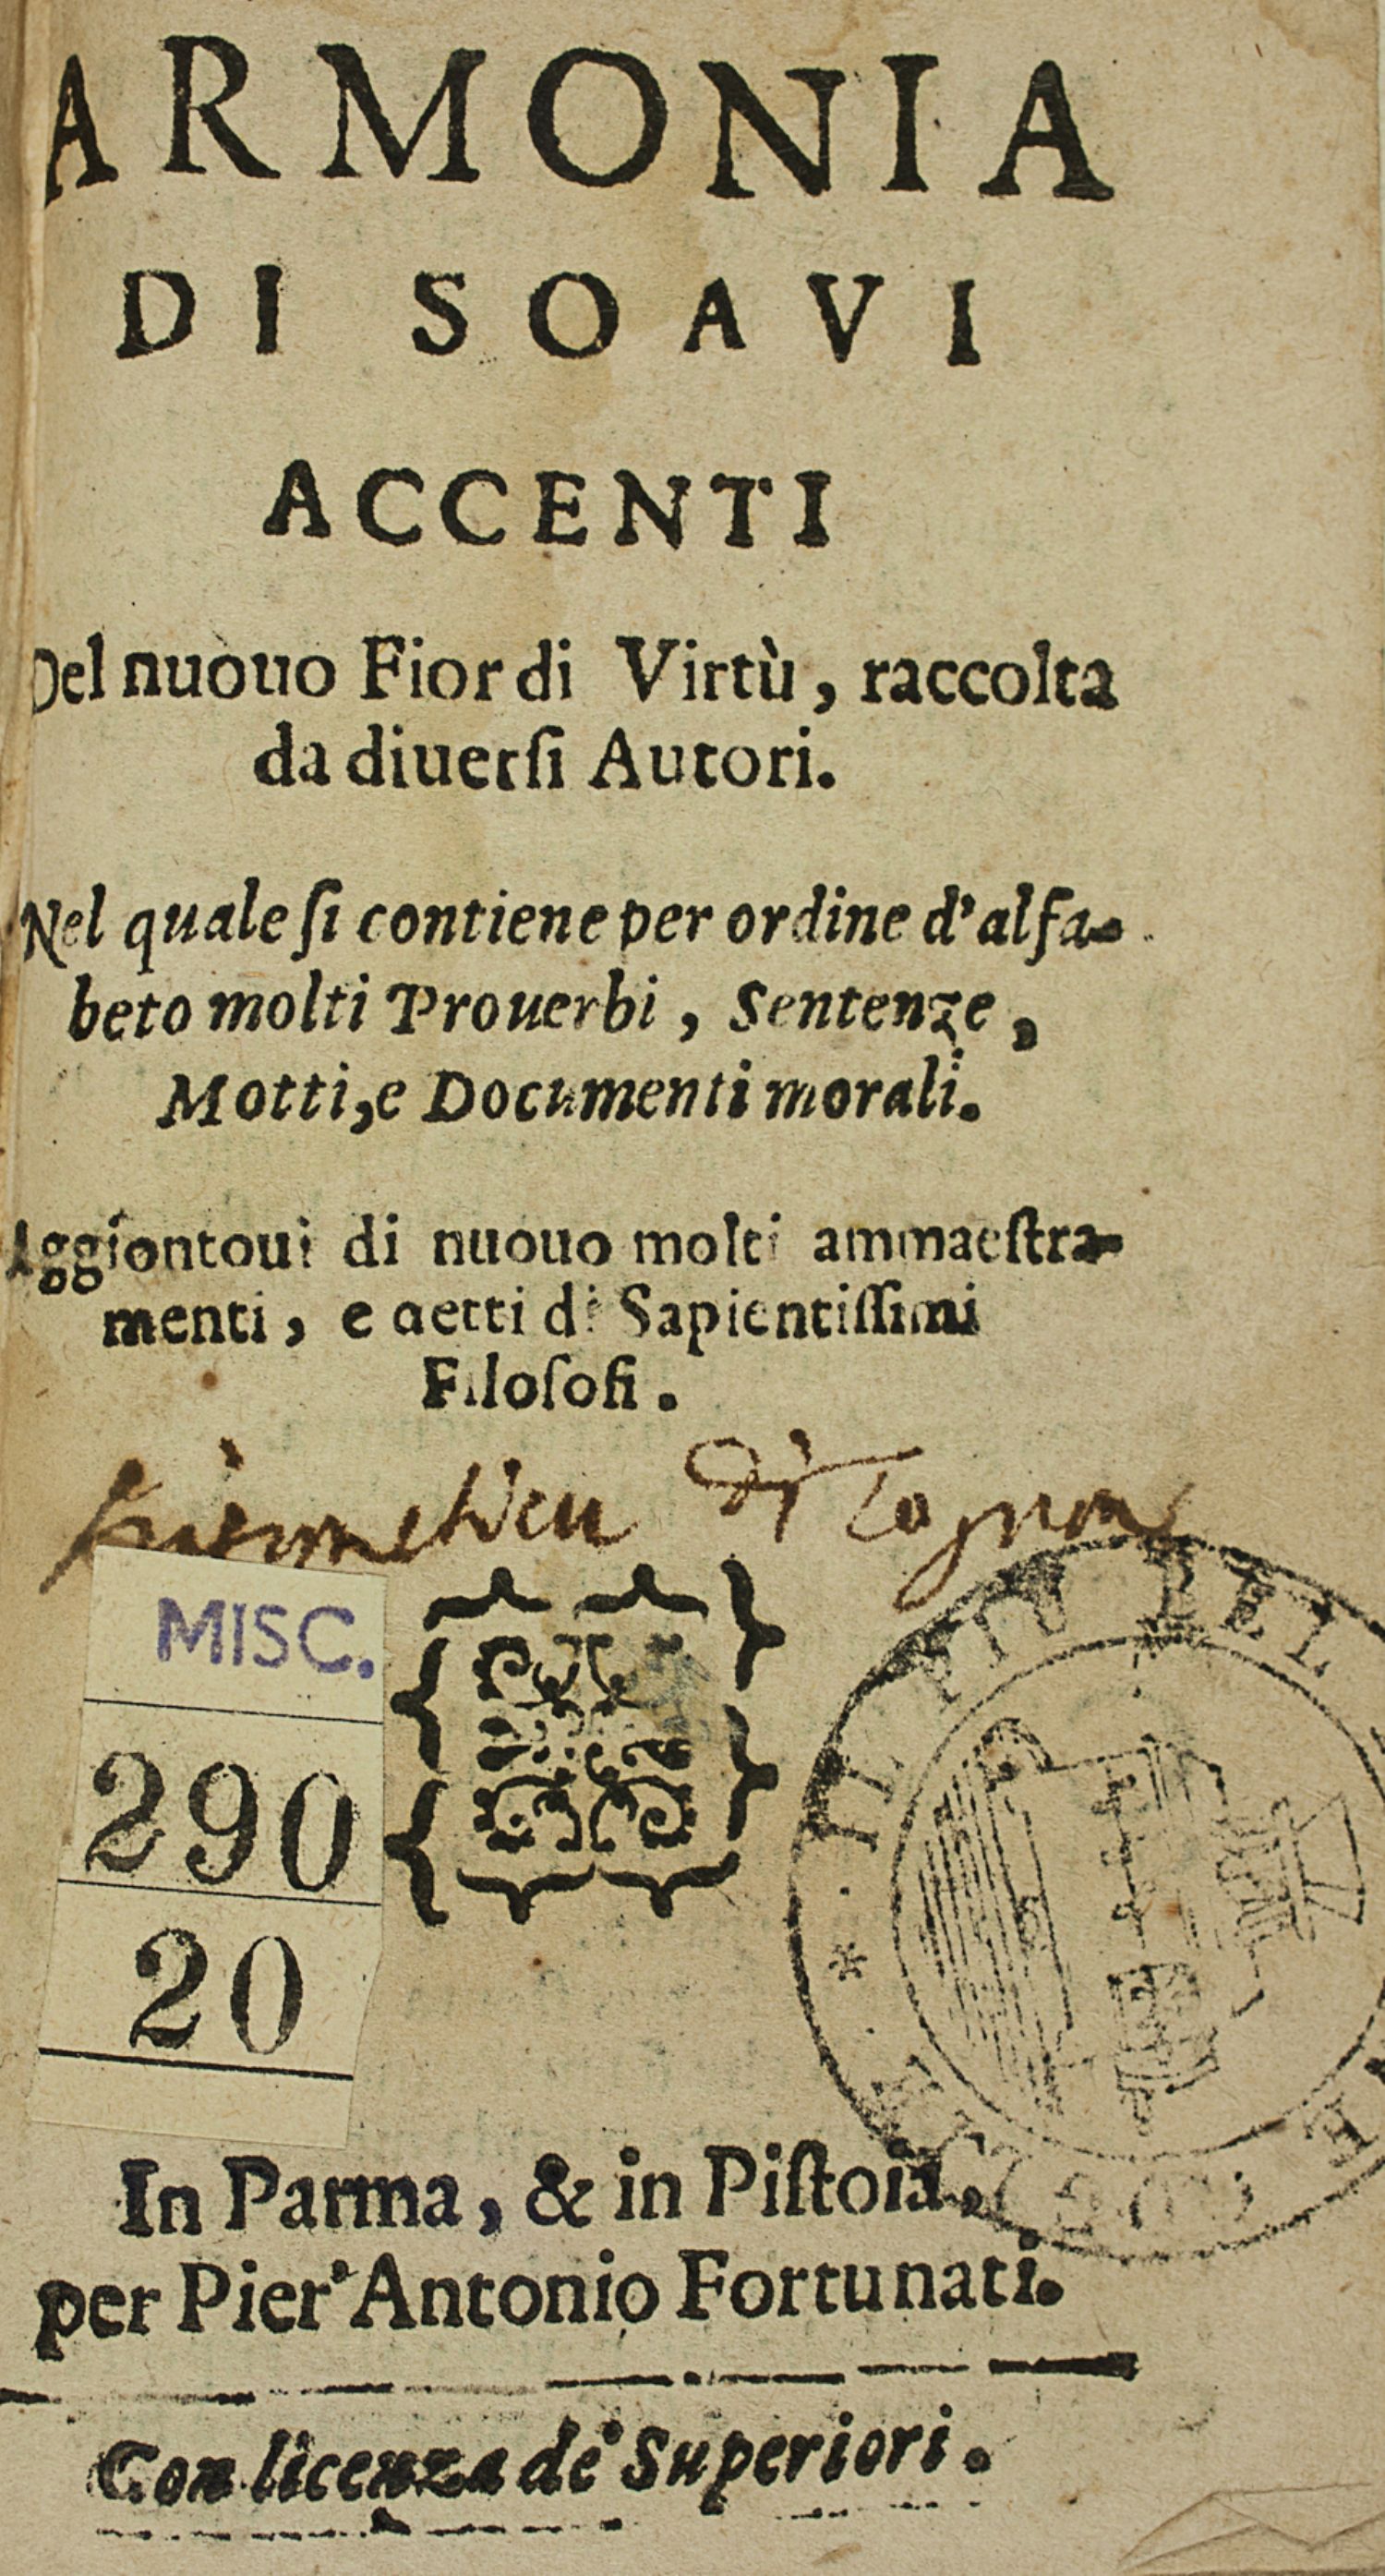 ARMONIA
DI SOAVI
ACCENTI
Del nuouo Fior di Virtù, raccolta
da diuerſi Autori.
Nel quale ſi contiene per ordine d'alfa-
beto molti Prouerbi, Sentenze,
Motti, e Documenti morali.
Aggiontoui di nuouo molti ammaeſtra-
menti, e detti di Sapientiſſimi
Filoſofi.
MISC.
290
20
In Parma, & in Piſtoia,
per Pier'Antonio Fortunati.
Con licenza de' Superiori.